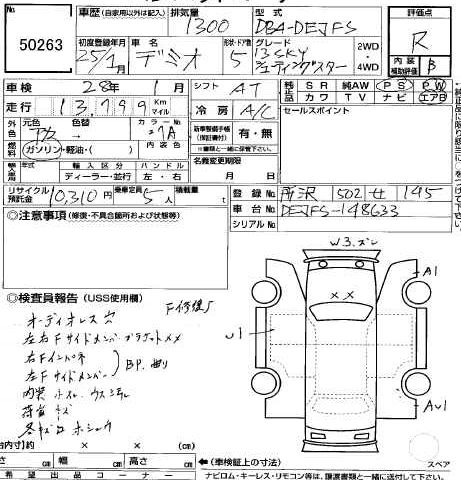 No.
50263
車歴 (自家用以外は記入)
排気量
1300
型式
DBA-DEJFS
評価点
R
初度登録年月
25/1月
車名
デミオ
形状・ドア数
5
グレード
13 SKY
シューティングスター
2WD
4WD
内装
補助評価
B
車検
28年1月
シフト
AT
装備品
SR 純AW PS PW
カワ TV ナビ エアB
走行
13,799
Km
マイル
冷房
A/C
セールスポイント
外色
元色
色替
カラーNo.
新車整備手帳
(保証書付)
有・無
※書類と一緒に保管して下さい。
燃料
ガソリン・軽油・( )
名義変更期限
月 日
輸入車
年式
輸入区分
ディーラー・並行
ハンドル
左・右
リサイクル
預託金
10,310円
乗車定員
5人
積載量
登録No.
所沢 502 せ 145
車台No.
DEJFS-148633
シリアルNo.
◎注意事項 (修復・不具合箇所および状態等)
W3.ズレ
××
A1
U1
AU1
スペア
◎検査員報告 (USS使用欄)
F修復S
オーディオレス 穴
左右Fサイドメンバーブラケット×メ
右Fインパネ
左Fサイドメンバー
B.P. 曲り
内装 小スレ ウスシミ
荷室 キズ
各キズ有 ホシュウ
台内寸)約 × × (cm)
さ cm 幅 cm 高さ cm
←(車検証上の寸法)
希望出品コーナー
ナビロム・キーレス・リモコン等は、譲渡書類と一緒に送付して下さい。